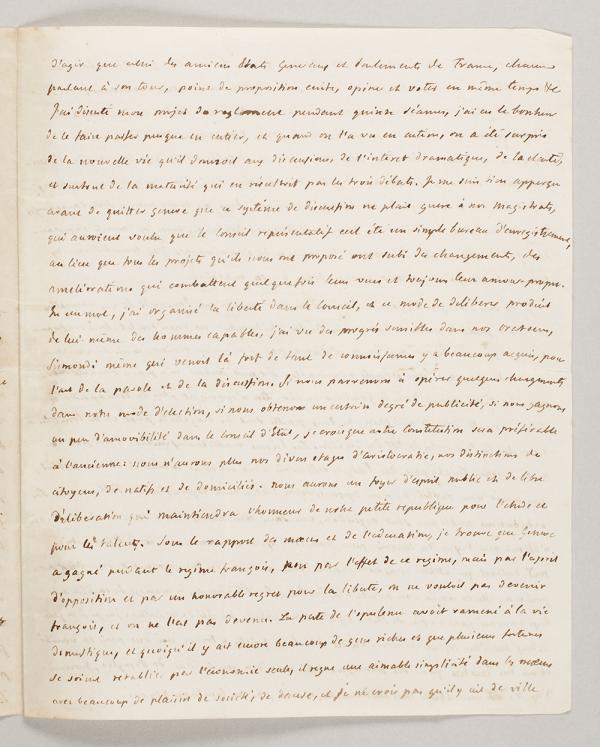 d'agir que celui des anciens Etats Generaux et Parlements de France, chacun
parlant à son tour, point de proposition ecrite, opiner et voter en même temps &c
J'ai discuté mon projet de reglement pendant quinze séances, j'ai eu le bonheur
de le faire passer presque en entier, et quand on l'a vu en action, on a été surpris
de la nouvelle vie qu'il donnoit aux discussions, de l'interet dramatique, de la clarté,
et surtout de la maturité qui en résultoit par les trois débats. Je me suis bien apperçu
avant de quitter Geneve que ce système de discussion ne plait guere à nos magistrats,
qui auroient voulu que le Conseil représentatif eut été un simple bureau d'enregistrement,
au lieu que tous les projets qu'ils nous ont proposé ont subi des changements, des
améliorations qui combattent quelquefois leurs vues et toujours leur amour-propre.
En un mot, j'ai organisé la liberté dans le Conseil, et ce mode de deliberer produit
de lui même des hommes capables, j'ai vu des progrès sensibles dans nos orateurs,
Sismondi même qui venoit là fort de tant de connoissances y a beaucoup acquis, pour
l'art de la parole et de la discussion. Si nous parvenons à opérer quelques changements
dans notre mode d'élection, si nous obtenons un certain degré de publicité, si nous gagnons
un peu d'amovibilité dans le Conseil d'Etat, je crois que notre Constitution sera préférable
à l'ancienne: nous n'aurons plus nos divers étages d'aristocratie, nos distinctions de
citoyens, de natifs et de domiciliés. nous aurons un foyer d'esprit public et de libre
Délibération qui maintiendra l'honneur de notre petite republique pour l'etude et
pour les talents. Sous le rapport des mœurs et de l'education, je trouve que Geneve
a gagné pendant le regime françois, non par l'effet de ce regime, mais par l'esprit
d'opposition et par un honorable regret pour la liberté, on ne vouloit pas devenir
françois, et on ne l'est pas devenu. La perte de l'opulence avoit ramené à la vie
domestique, et quoiqu'il y ait encore beaucoup de gens riches et que plusieurs fortunes
se soient retablies par l'économie seule, il regne une aimable simplicité dans les mœurs
avec beaucoup de plaisirs de société, de danse, et je ne crois pas qu'il y ait de ville